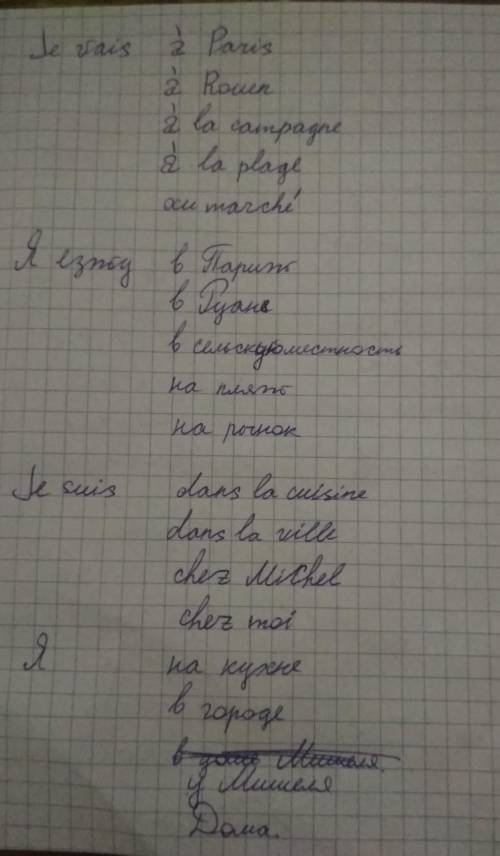 Je vais à Paris
à Rouen
à la campagne
à la plage
au marché
Я езжу в Париж
в Руан
в сельскую местность
на пляж
на рынок
Je suis dans la cuisine
dans la ville
chez Michel
chez moi
Я на кухне
в городе
в доме Мишеля
у Мишеля
Дома.